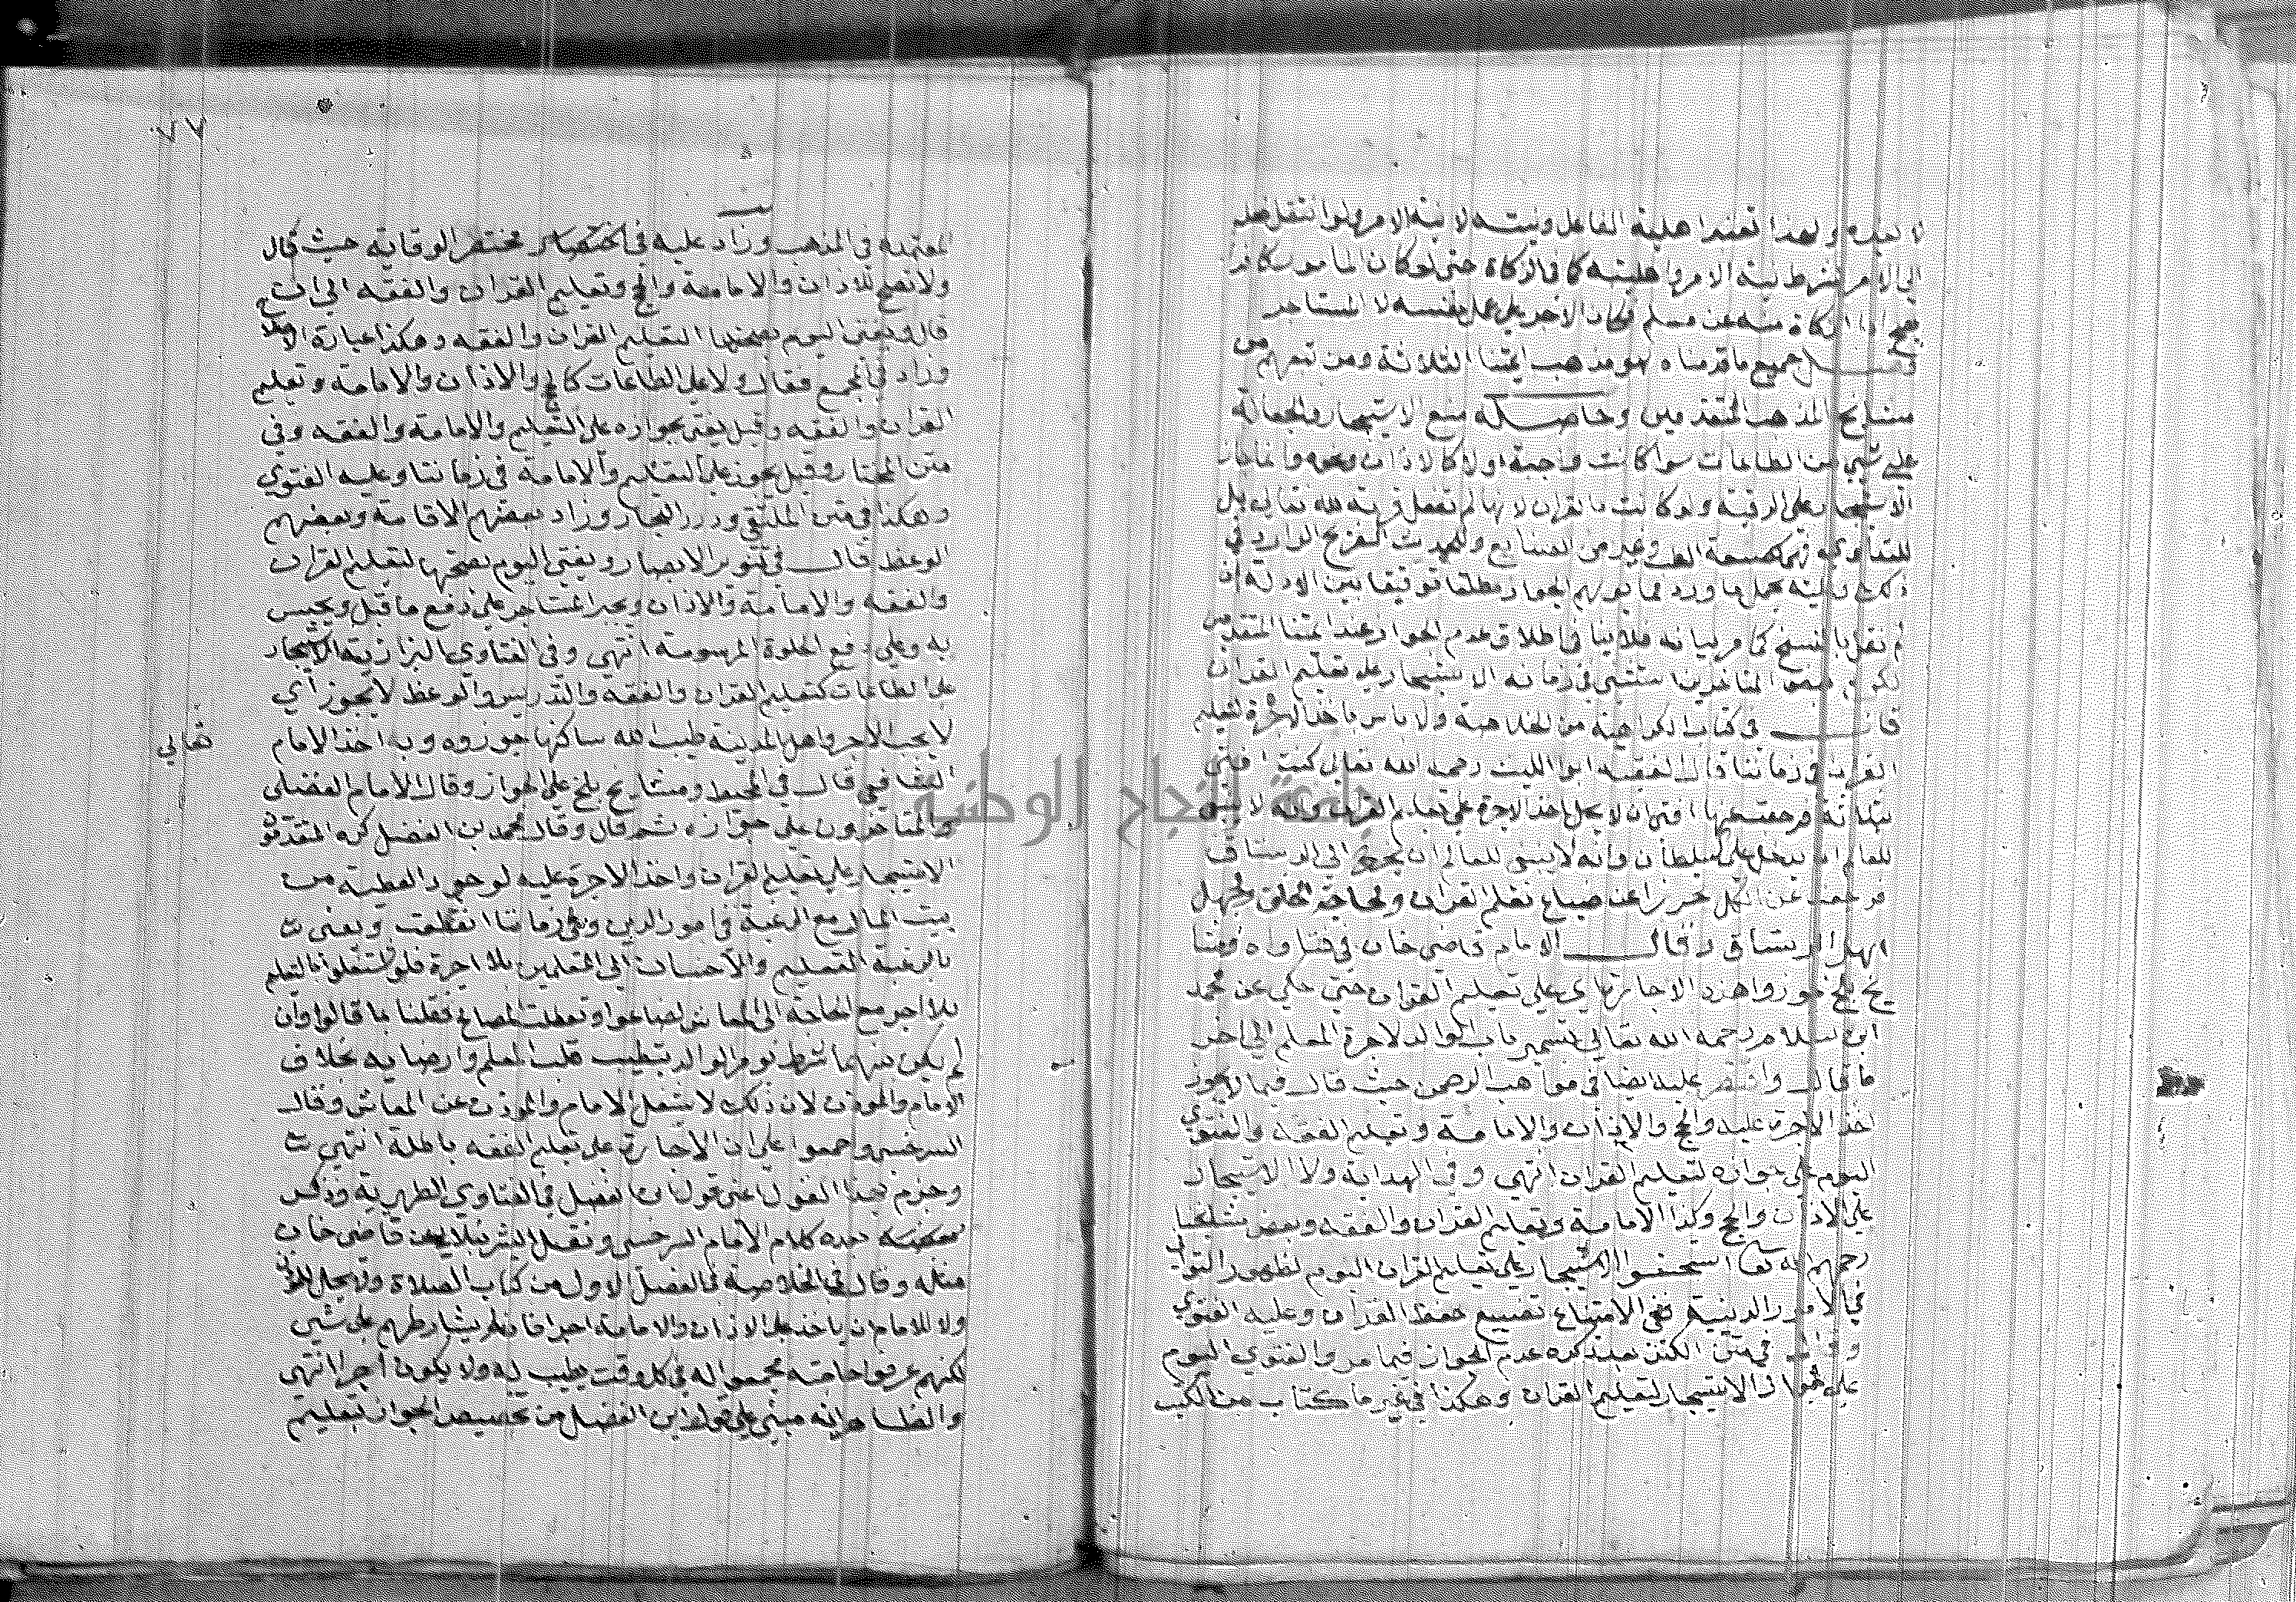 لا لغيره ولهذا تعتبر اهلية الفاعل ونيته لا نية الامر ولو انتقل فعله
الى الامر لشرط نية الامر واهليته كما في الزكاة حتى لو كان المامور كافرا
يصح اداء الزكاة منه عن مسلم فكان الاخير على عمل بنفسه لا المستاجر
فصل جميع ما قدمناه هو مذهب ايمتنا الثلاثة ومن تبعهم من
مشايخ المذهب المتقدمين وحاصله منع الاستيجار والجعالة
على شيي من الطاعات سوا كانت واجبة اولا كالاذان ونحوه وانما جاز
الاستيجار على الرقية ولو كانت بالقران لانها لم تفعل قربة لله تعالى بل
للتداوي فهي كصنعة الطب وغيره من الصنايع وللحديث الصريح الوارد في
ذلك وعليه يحمل ما ورد مما يوهم الجواز مطلقا توفيقا بين الادلة ان
لم نقل بالنسخ كما مر بيانه فلا ينافي اطلاق عدم الجواز عند ايمتنا المتقدمين
لكن بعض المتاخرين استثنى في زمانه الاستيجار على تعليم القران
قال في كتاب الكراهية من الخلاصة ولا باس باخذ الاجرة لتعليم
القران في زماننا قال الفقيه ابو الليث رحمه الله تعالى كنت افتي
بثلاثة فرجعت عنها افتي ان لا يحل اخذ الاجرة على تعليم القران وانه لا ينبغي
للعالم ان يدخل على السلطان وانه لا ينبغي للعالم ان يخرج الى الرستاق
فرجعت عن الكل تحرزا عن ضياع تعلم القران ولحاجة الخلق ولجهل
اهل الرستاق وقال الامام قاضي خان في فتاواه ومشا
يخ بلخ جوزوا هذه الاجارة اي على تعليم القران حتى حكي عن محمد
ابن سلام رحمه الله تعالى بتسمير باب الوالد لاجرة المعلم الى اخر
ما قال واقتصر عليه ايضا في مواهب الرحمن حيث قال فيما لا يجوز
اخذ الاجرة عليه والحج والاذان والامامة وتعليم الفقه والفتوى
اليوم على جوازه لتعليم القران انتهى وفي الهداية ولا الاستيجار
على الاذان والحج وكذا الامامة وتعليم القران والفقه وبعض مشايخنا
رحمهم الله تعا استحسنوا الاستيجار على تعليم القران اليوم لظهور التواني
في الامور الدينية ففي الامتناع تضييع حفظ القران وعليه الفتوى
وقال في متن الكنز بعد ذكره عدم الجواز فيما مر والفتوى اليوم
على جواز الاستيجار لتعليم القران وهكذا في غير ما كتاب من الكتب
٧٧
المعتمدة في المذهب وزاد عليه في مختصر الوقاية حيث قال
ولا تصح للاذان والامامة والحج وتعليم القران والفقه الى ان
قال ويفتى اليوم بصحتها لتعليم القران والفقه وهكذا عبارة
وزاد في المجمع فقال ولا على الطاعات كالحج والاذان والامامة وتعليم
القران والفقه وقيل يفتى بجوازه على التعليم والامامة والفقه وفي
متن المختار وقيل يجوز على التعليم والامامة في زماننا وعليه الفتوى
وهكذا في متن الملتقى ودرر البحار وزاد بعضهم الاقامة وبعضهم
الوعظ قال في تنوير الابصار ويفتى اليوم بصحتها لتعليم القران
والفقه والامامة والاذان ويجبر المستاجر على دفع ما قبل ويحبس
به وعلى دفع الحلوة المرسومة انتهى وفي الفتاوى البزازية الاستيجار
على الطاعات كتعليم القران والفقه والتدريس والوعظ لا يجوز اي
لا يجب الاجر واهل المدينة طيب الله ساكنها جوزوه وبه اخذ الامام
تعالى
الشافعي قال في المحيط ومشايخ بلخ على الجواز وقال الامام الفضلي
والمتاخرون على جوازه ثم قال وقال محمد بن الفضل كره المتقدمون
الاستيجار على تعليم القران واخذ الاجرة عليه لوجود العطية من
بيت المال مع الرغبة في امور الدين وفي زماننا انقطعت ويعني
بالرغبة التعليم والاحسان الى المتعلمين بلا اجرة فلو اشتغلوا بالتعليم
بلا اجر مع الحاجة الى المعاش لضاعوا وتعطلت المصالح فقلنا بما قالوا وان
لم يكن بينهما شرط نومر الوالد بتطييب قلب المعلم وارضايه بخلاف
الامام والموذن لان ذلك لا يشغل الامام والموذن عن المعاش وقال
السرخسي واجمعوا على ان الاجارة على تعليم الفقه باطلة انتهى
وجزم بهذا القول اعني قول ابن الفضل في الفتاوى الظهيرية وذكر
بعده كلام الامام السرخسي ونقل عن قاضي خان
مثله وقال في الخلاصة في الفصل الاول من كتاب الصلاة ولا يحل للموذن
ولا للامام ان ياخذ على الاذان والامامة اجرا فان لم يشارطهم على شيي
لكنهم عرفوا حاجته فجمعوا له في كل وقت يطيب له ولا يكون اجرا انتهى
والظاهر انه مبني على قول ابن الفضل من تخصيص الجواز بتعليم
جامعة النجاح الوطنية